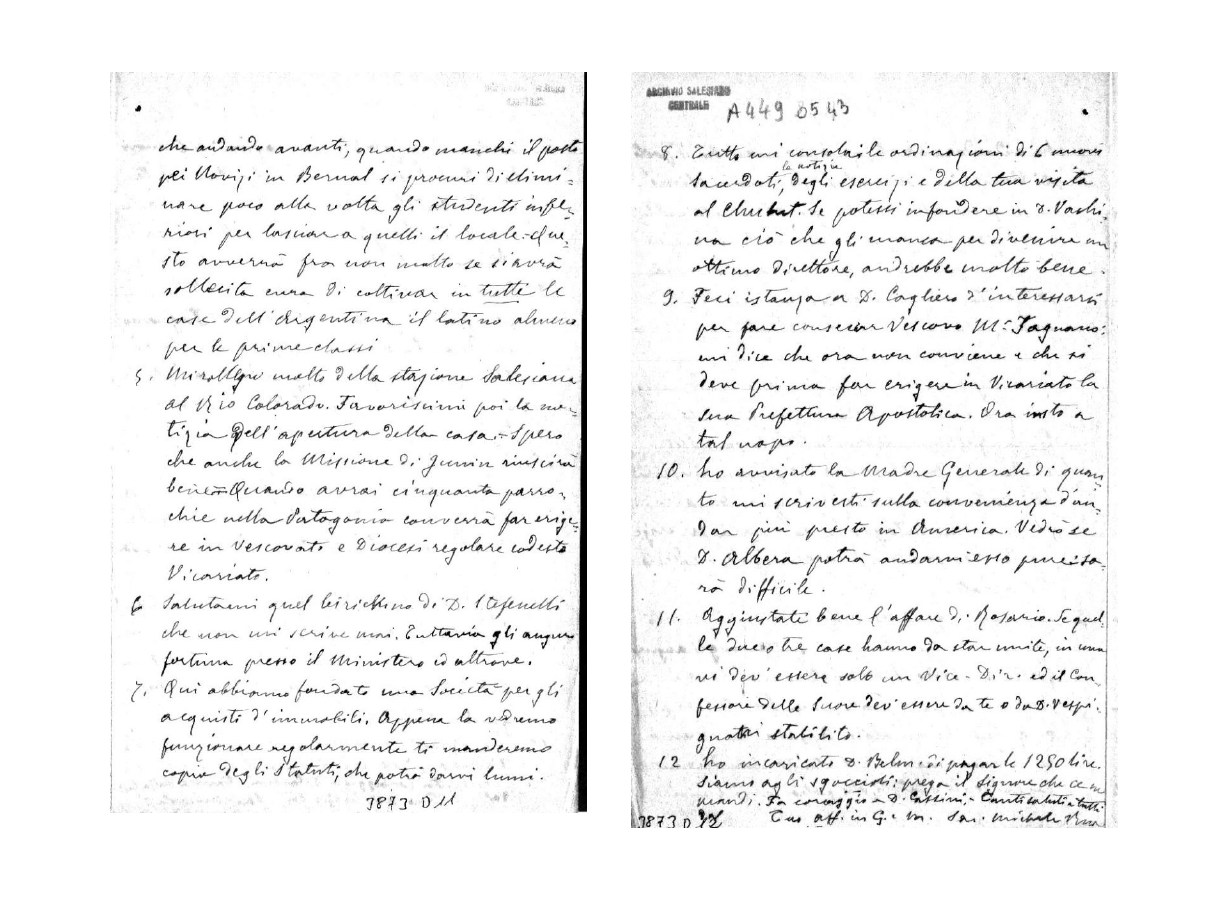 che andando avanti, quando manchi il posto
pei Novizi in Bernal si procuri di elimi=
nare poco alla volta gli studenti infe=
riori per lasciar a quelli il locale. Que=
sto avverrà fra non molto se si avrà
sollecita cura di coltivar in tutte le
case dell'Argentina il latino almeno
per le prime classi
5. Mi rallegro molto della stazione Salesiana
al Rio Colorado. Favoriscimi poi la no=
tizia dell'apertura della casa. Spero
che anche la Missione di Junin riuscirà
bene. Quando avrai cinquanta parro=
chie nella Patagonia converrà far erige=
re in Vescovato e Diocesi regolare codesto
Vicariato.
6 Salutami quel birichino di D. Stefenelli
che non mi scrive mai. Tuttavia gli auguro
fortuna presso il Ministero ed altrove.
7. Qui abbiamo fondato una Società per gli
acquisti d'immobili. Appena la vedremo
funzionare regolarmente ti manderemo
copia degli Statuti, che potrà darvi lumi.
3873 D 11
ARCHIVIO SALESIANO
CENTRALE
A 449 0543
8. Tutto mi consola: le ordinazioni di 6 nuovi
la notizia
sacerdoti, degli esercizi e della tua visita
al Chubut. Se potessi infondere in D. Vachi=
na ciò che gli manca per divenire un
ottimo direttore, andrebbe molto bene.
9. Feci istanza a D. Cagliero d'interessarsi
per fare consecrar Vescovo Mr. Fagnano:
mi dice che ora non conviene e che si
deve prima far erigere in Vicariato la
sua Prefettura Apostolica. Ora insto a
tal uopo.
10. ho avvisato la Madre Generale di quan=
to mi scrivesti sulla convenienza d'an=
dar più presto in America. Vedrò se
D. Albera potrà andarvi esso pure: sa=
rà difficile.
11. Aggiustate bene l'affare di Rosario. Se quel=
le due o tre case hanno da star unite, in una
vi dev'essere solo un Vice-Dir. ed il Con=
fessore delle Suore dev'essere da te o da D. Vespi=
gnani stabilito.
12 ho incaricato D. Belm. di pagar le 1250 lire.
siamo agli sgoccioli: prega il Signore che ce ne
mandi. Fa coraggio a D. Cassini. Tanti saluti a tutti
Tuo aff. in G. e M. Sac. Michele Rua
3873 D 12